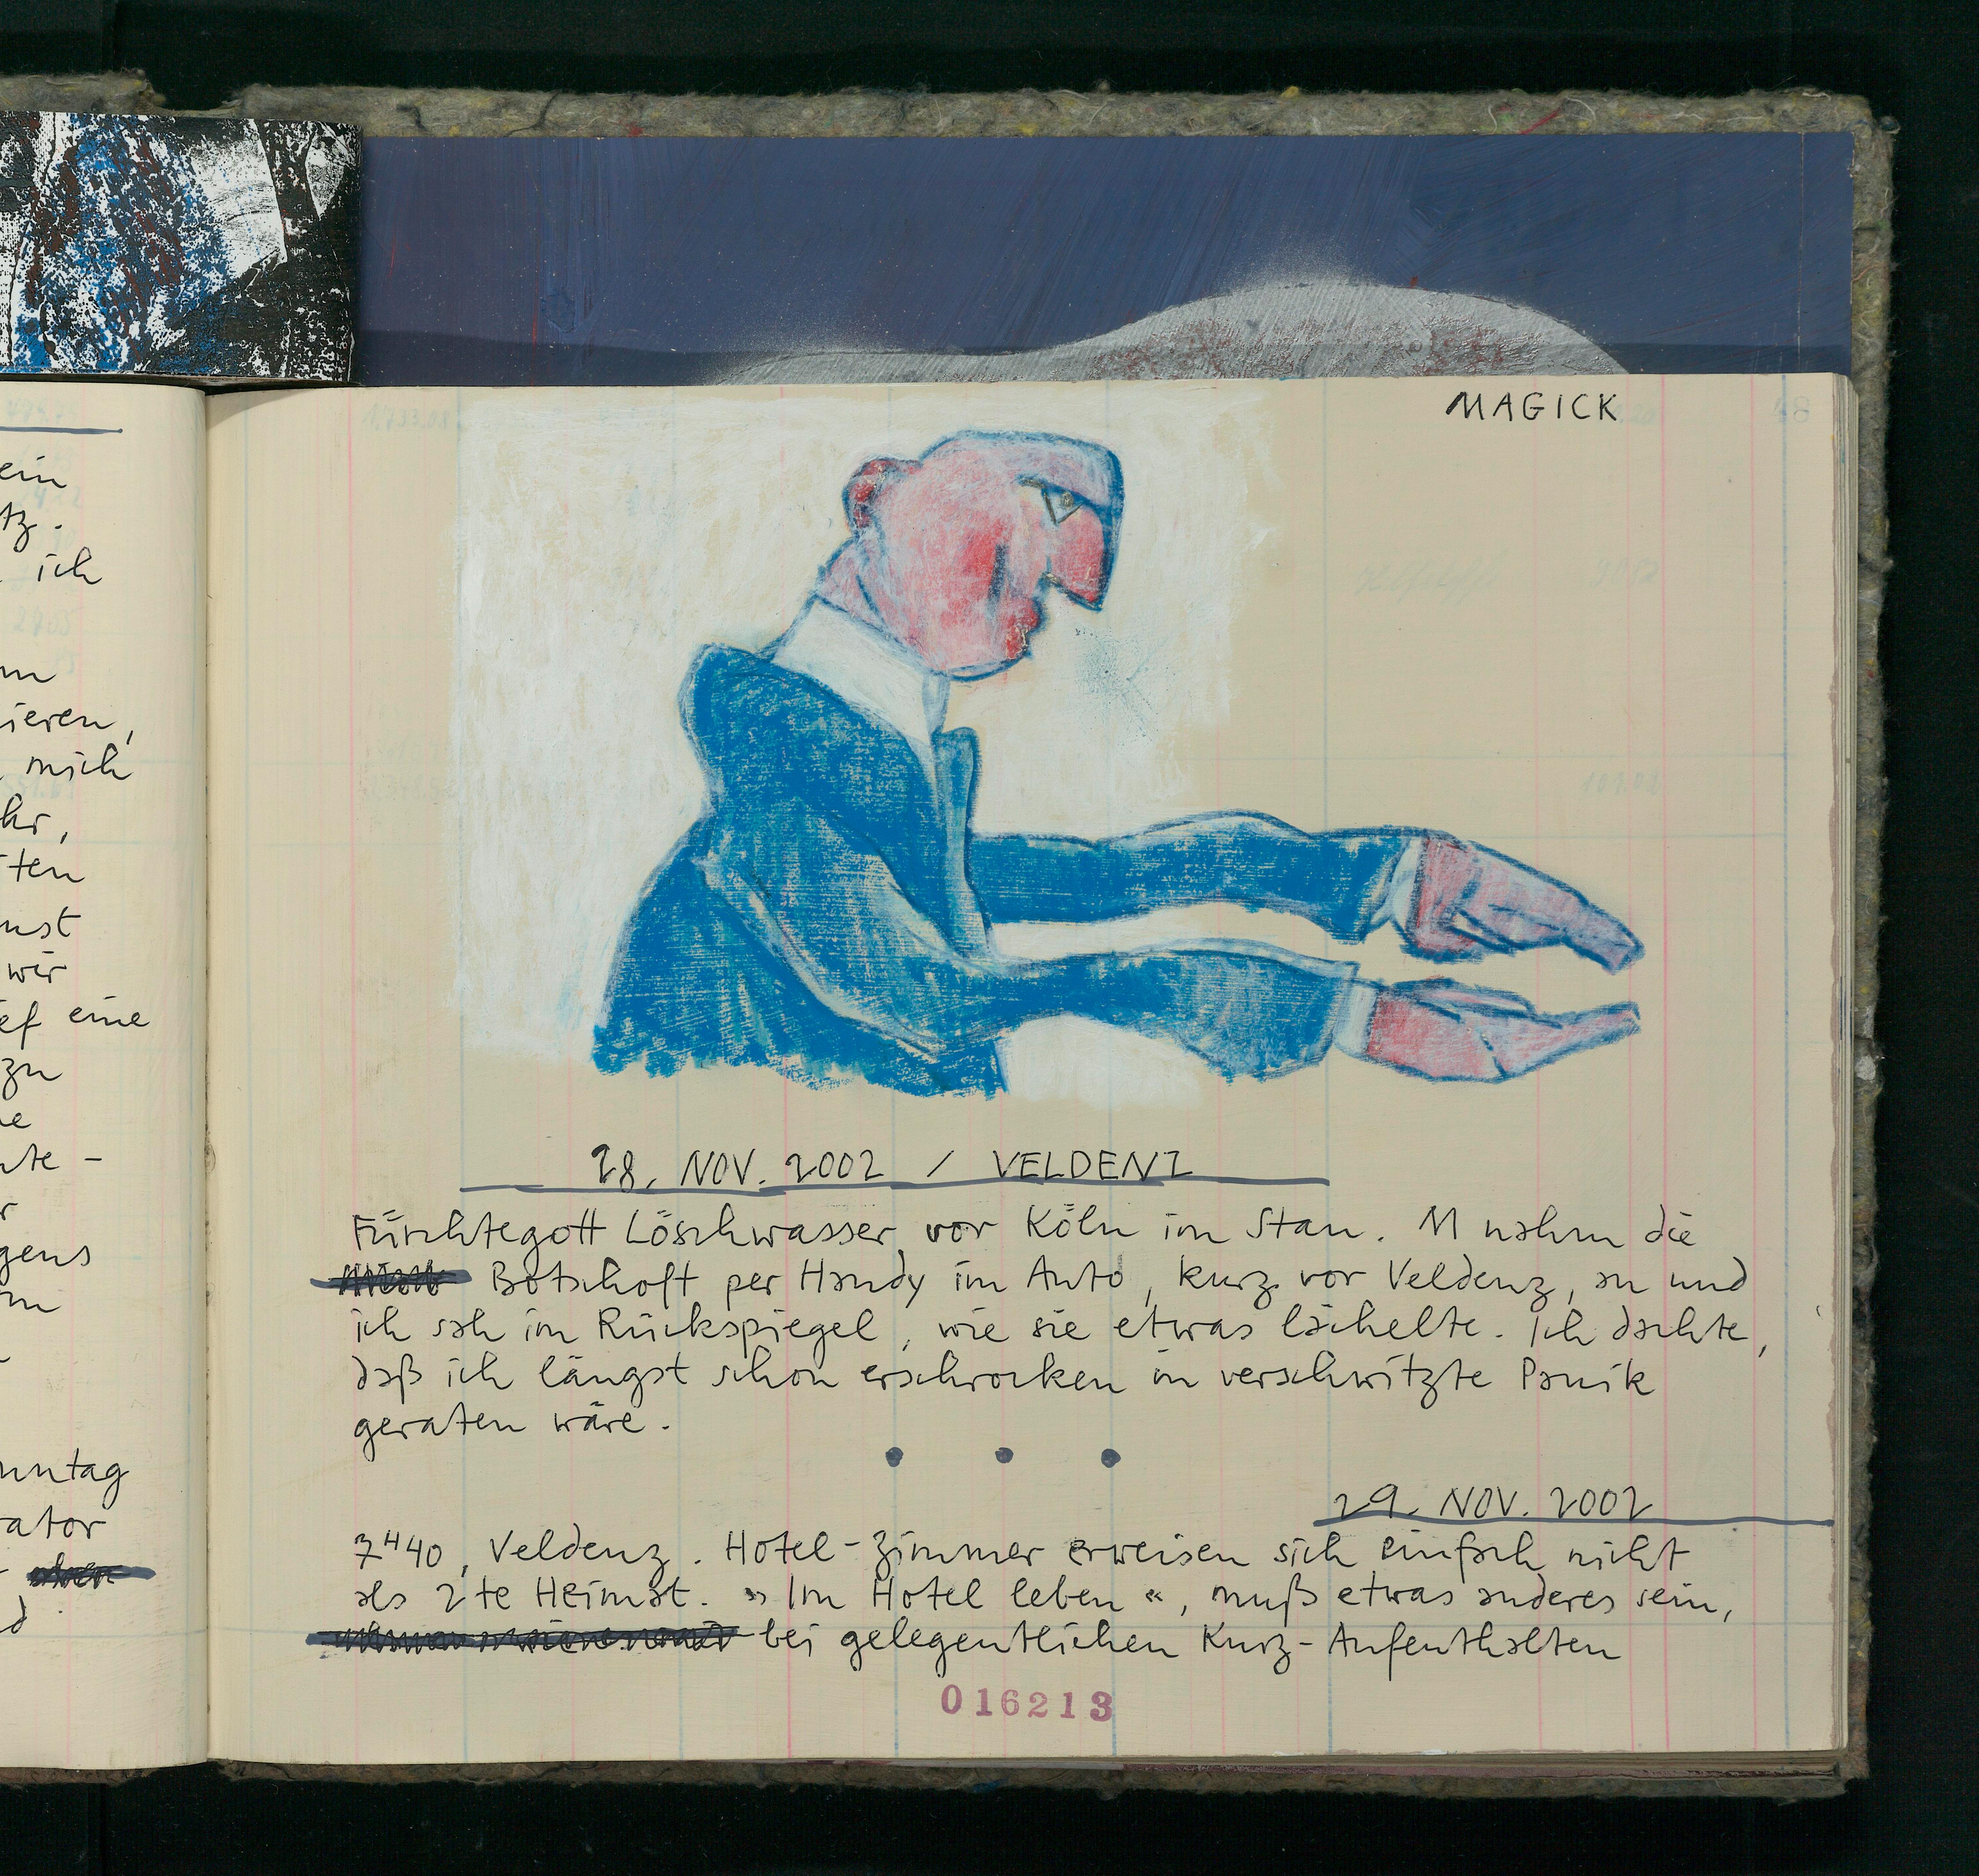 ein
tz.
ich
ieren,
mich
hr,
ten
nst
wir
ef eine
zu
te -
r
gens
m
nntag
rator
d
MAGICK
28. NOV. 2002 / VELDENZ
Fürchtegott Löschwasser vor Köln im Stau. M nahm die
Botschaft per Handy im Auto, kurz vor Veldenz, an und
ich sah im Rückspiegel, wie sie etwas lächelte. Ich dachte,
daß ich längst schon erschrocken in verschwitzte Panik
geraten wäre.
29. NOV. 2002
7H40, Veldenz. Hotel-Zimmer erweisen sich einfach nicht
als 2te Heimat. »Im Hotel leben«, muß etwas anderes sein,
bei gelegentlichen Kurz-Aufenthalten
016213